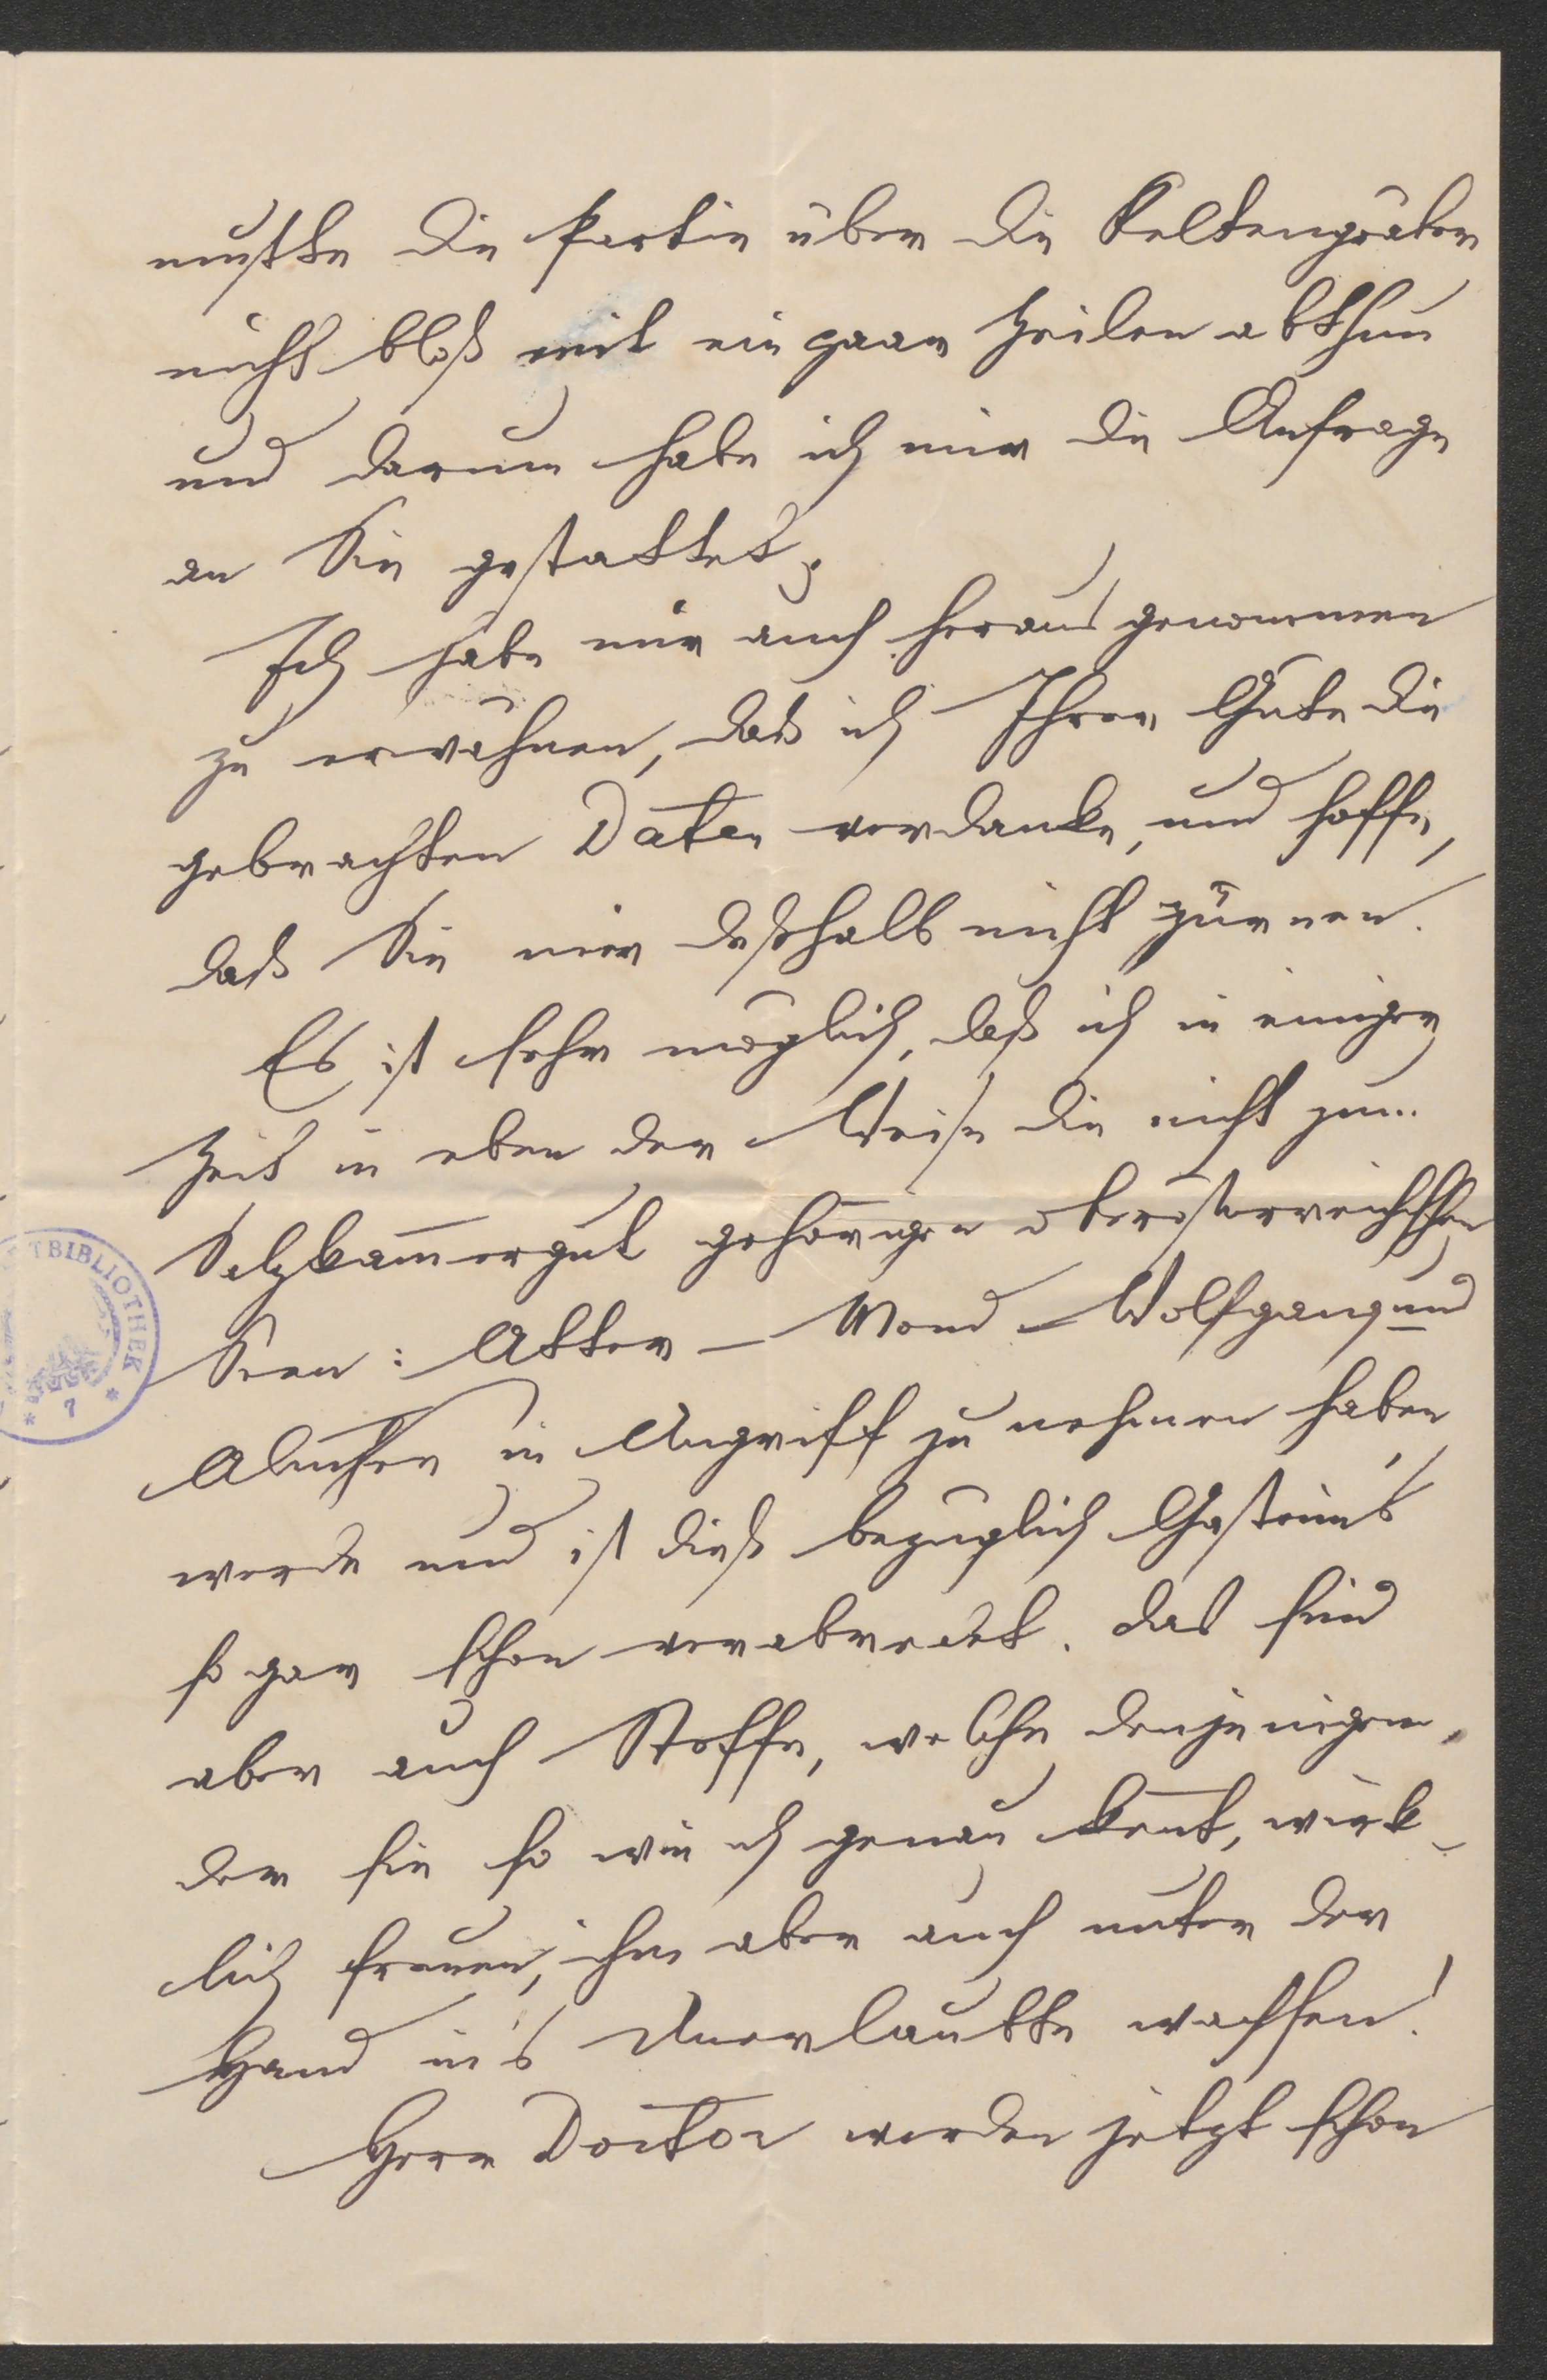 mußte die Partie über die Keltengräber
nicht bloß mit ein paar Zeilen abthun
und darum habe ich mir die Anfrage
an Sie gestattet.
Ich habe mir auch herausgenommen
zu erwähnen, daß ich Ihrer Güte die
gebrachten Daten verdanke, und hoffe,
daß Sie mir deßhalb nicht zürnen.
Es ist sehr möglich, daß ich in einiger
Zeit in eben der Weise die nicht zum
Salzkam̄ergut gehörigen oberösterreichischen
Seen: Atter – Mond – Wolfgang und
Almsee in Angriff zu nehmen haben
werde und ist dieß bezüglich Gastein's
sogar schon verabredet. Das sind
aber auch Stoffe, welche denjenigen,
der sie so wie ich genau ken̄t, wirk-
lich freuen, ihm aber auch unter der
Hand in's Unerlaubte wachsen!
Herr Doctor werden jetzt schon
TBIBLIOTHEK
* 7 *